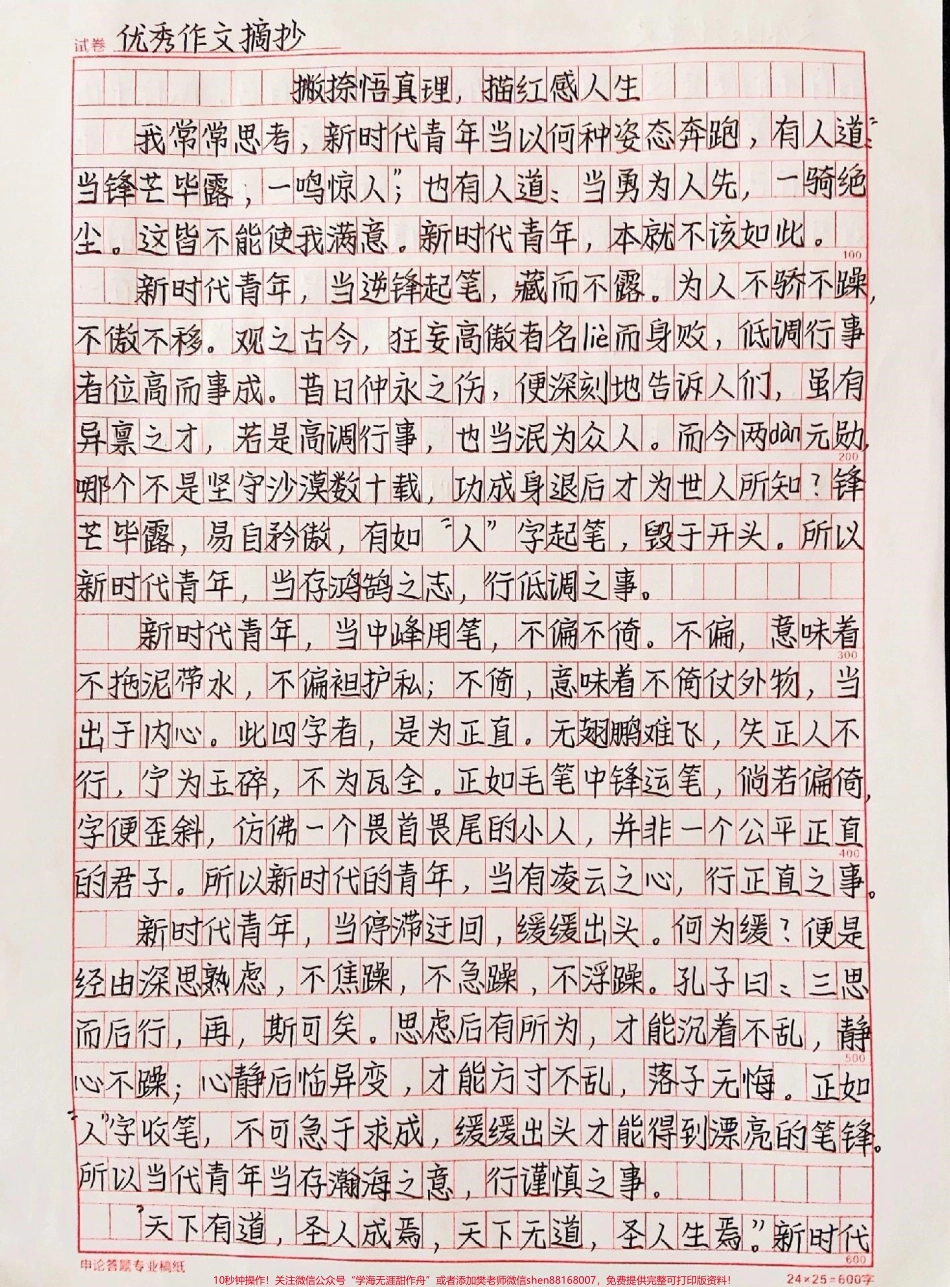 试卷 优秀作文摘抄
撇捺悟真理，描红感人生
我常常思考，新时代青年当以何种姿态奔跑，有人道：“
当锋芒毕露，一鸣惊人”；也有人道：当勇为人先，一骑绝
尘。这皆不能使我满意。新时代青年，本就不该如此。
100
新时代青年，当逆锋起笔，藏而不露。为人不骄不躁，
不傲不移。观之古今，狂妄高傲者名liè而身败，低调行事
者位高而事成。昔日仲永之伤，便深刻地告诉人们，虽有
异禀之才，若是高调行事，也当泯为众人。而今两dàn元勋，
200
哪个不是坚守沙漠数十载，功成身退后才为世人所知？锋
芒毕露，易自矜傲，有如“人”字起笔，毁于开头。所以
新时代青年，当存鸿鹄之志，行低调之事。
新时代青年，当中峰用笔，不偏不倚。不偏，意味着
300
不拖泥带水，不偏袒护私；不倚，意味着不倚仗外物，当
出于内心。此四字者，是为正直。无翅鹏难飞，失正人不
行，宁为玉碎，不为瓦全。正如毛笔中锋运笔，倘若偏倚，
字便歪斜，仿佛一个畏首畏尾的小人，并非一个公平正直
400
的君子。所以新时代的青年，当有凌云之心，行正直之事。
新时代青年，当停滞迂回，缓缓出头。何为缓？便是
经由深思熟虑，不焦躁，不急躁，不浮躁。孔子曰：三思
而后行，再，斯可矣。思虑后有所为，才能沉着不乱，静
500
心不躁；心静后临异变，才能方寸不乱，落子无悔。正如
“人”字收笔，不可急于求成，缓缓出头才能得到漂亮的笔锋。
所以当代青年当存瀚海之意，行谨慎之事。
“天下有道，圣人成焉，天下无道，圣人生焉。”新时代
600
申论答题专业稿纸
24×25=600字
10秒钟操作！关注微信公众号“学海无涯甜作舟”或者添加樊老师微信shen88168007，免费提供完整可打印版资料！